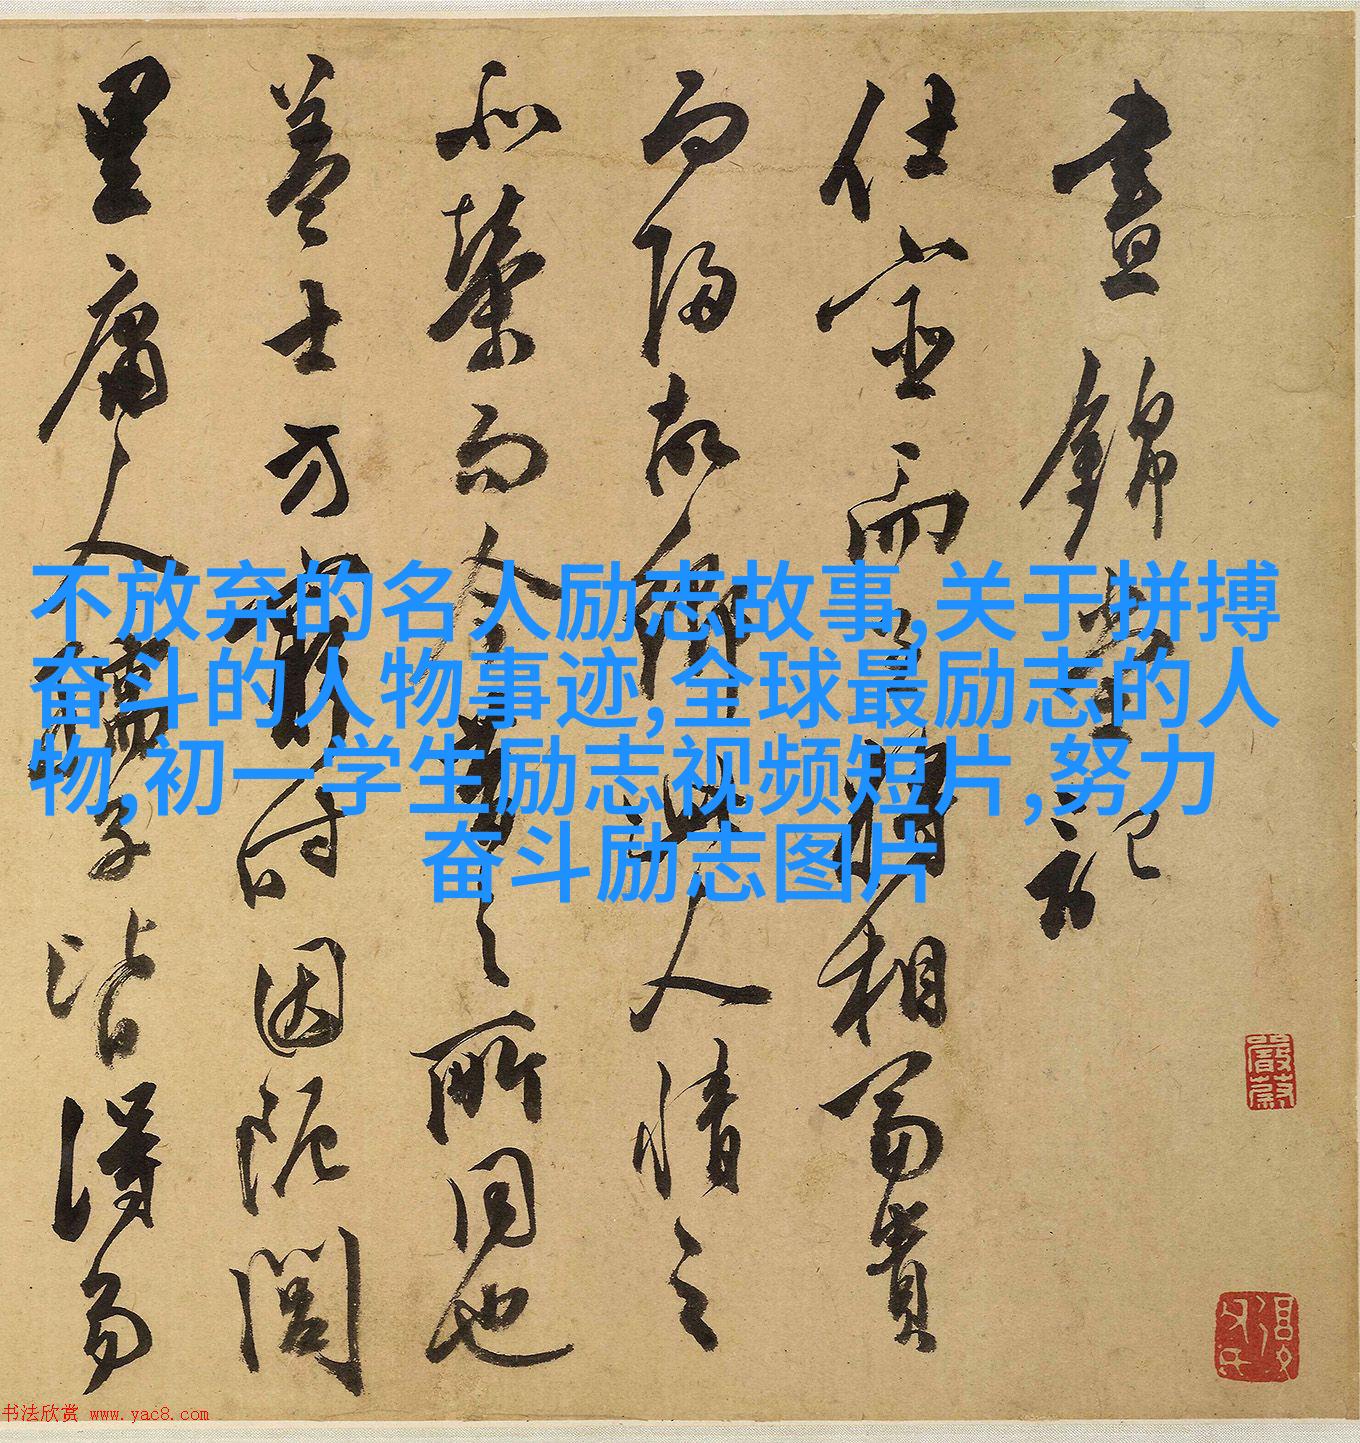 晝錦堂記
仕宦而至將相富貴
而歸故鄉此人情之
所榮而今昔之所同也
蓋士方窮時困阨閭
里庸人孺子皆得易
不放弃的名人励志故事,关于拼搏
奋斗的人物事迹,全球最励志的人
物,初一学生励志视频短片,努力
奋斗励志图片
书法欣赏 www.yac8.com